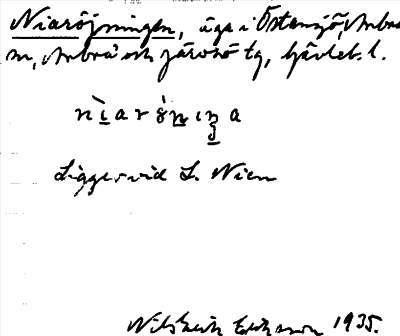 Niaröjningen, äga i Östansjö, Arbrå
sn, Arbrå och Järvsö tg, Gävleb. l.
nìarö́nıŋa
Ligger vid L. Nien
Nils Erik Eriksson 1935.